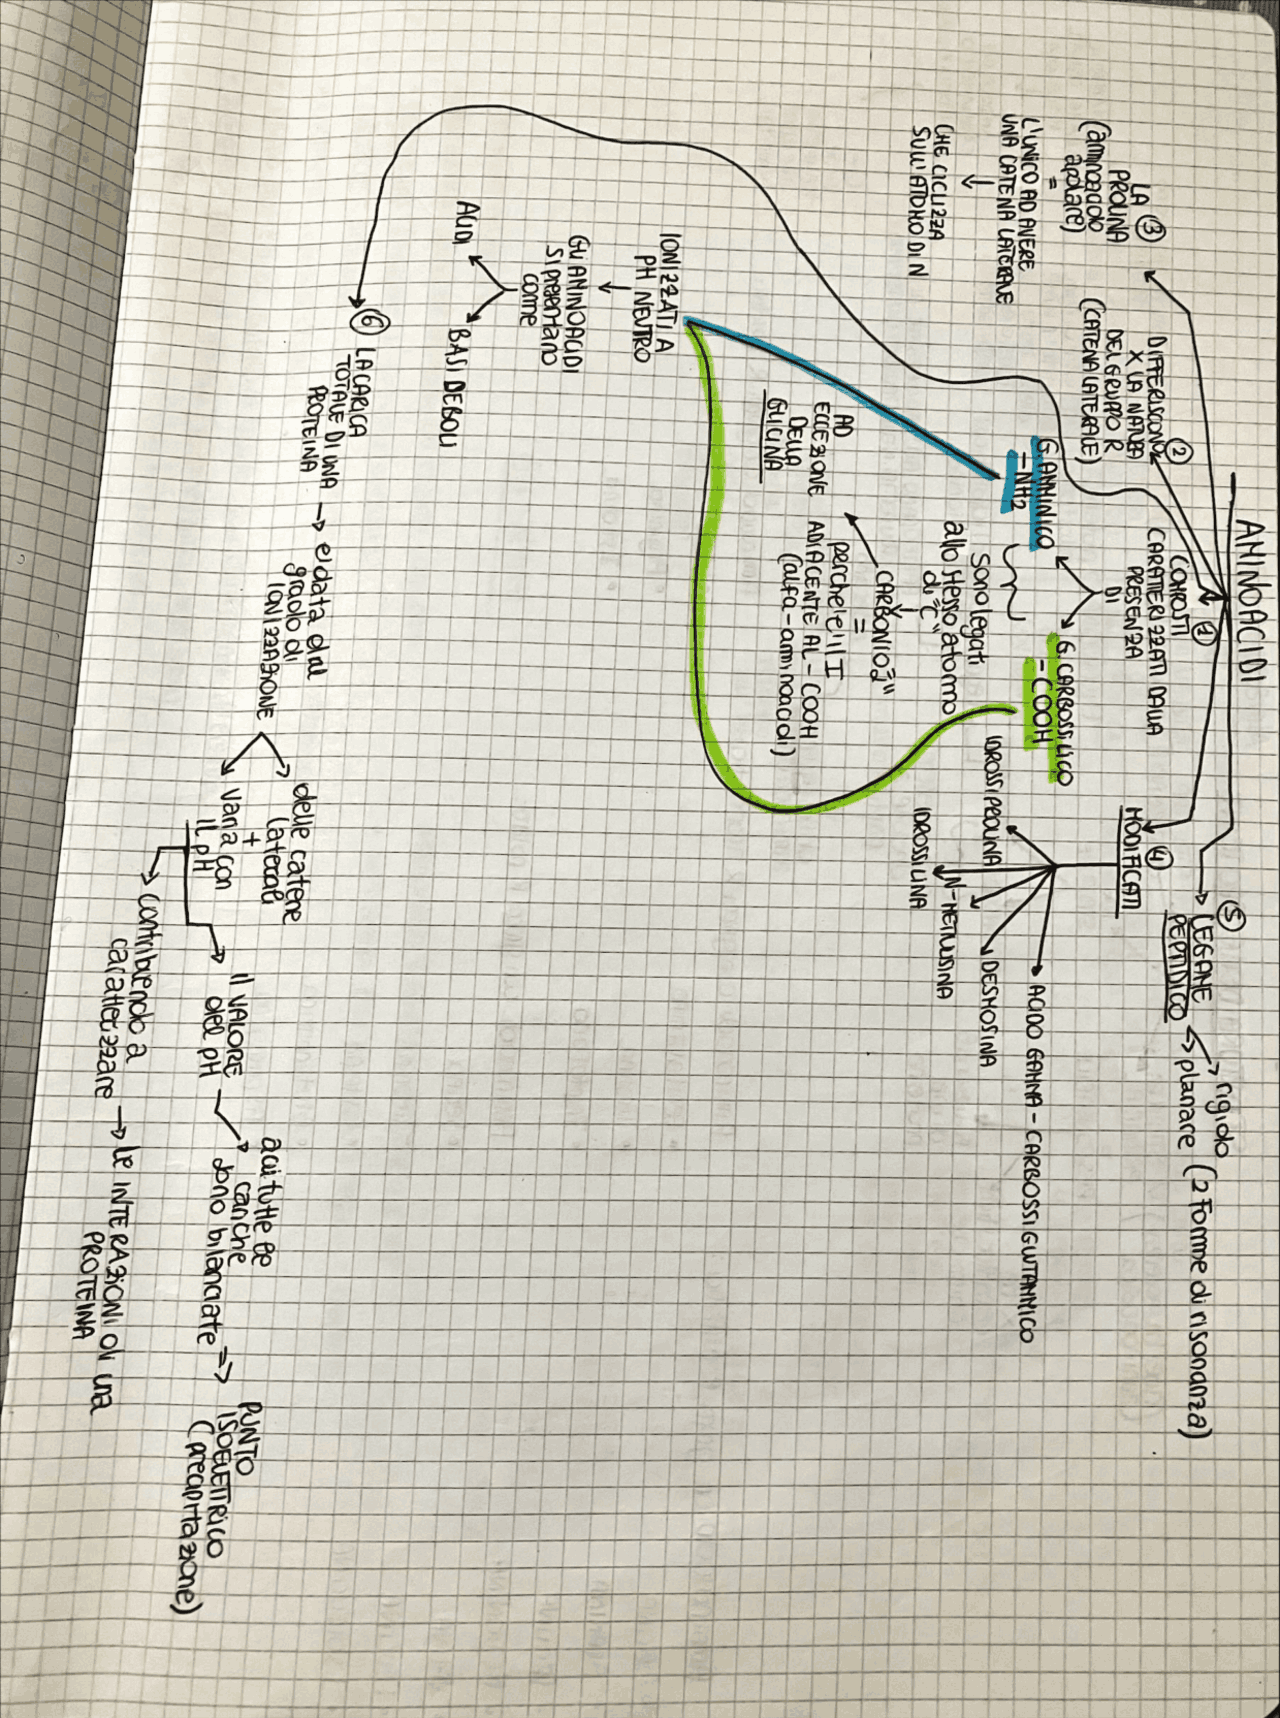 AMINOACIDI
①
COMPOSTI
CARATTERIZZATI DALLA
PRESENZA
DI
G. AMMINICO
-NH2
G. CARBOSSILICO
-COOH
sono legati
allo stesso atomo
di "C"
CARBONIO 2"
=
perche le il I
ADIACENTE AL -COOH
(alfa-amminoacidi)
AD
ECCEZIONE
DELLA
GLICINA
IONIZZATI A
PH NEUTRO
GLI AMINOACIDI
SI presentano
come
ACIDI
BASI DEBOLI
②
DIFFERISCONO
X LA NATURA
DEL GRUPPO R
(CATENA LATERALE)
③
LA
PROLINA
(aminoacido
apolare)
=
L'UNICO AD AVERE
UNA CATENA LATERALE
CHE CICLIZZA
SULL'ATOMO DI N
④
MODIFICATI
IDROSSIPROLINA
IDROSSILINA
N-METILLISINA
DESMOSINA
ACIDO GAMMA-CARBOSSIGLUTAMMICO
⑤
LEGAME
PEPTIDICO
rigido
planare (2 Forme di risonanza)
⑥ LA CARICA
TOTALE DI UNA
PROTEINA
e' data dal
grado di
IONIZZAZIONE
delle catene
laterali
+
varia con
IL pH
Il VALORE
del pH
a cui tutte le
cariche
sono bilanciate =>
PUNTO
ISOELETTRICO
(precipitazione)
contribuendo a
caratterizzare
le INTERAZIONI di una
PROTEINA